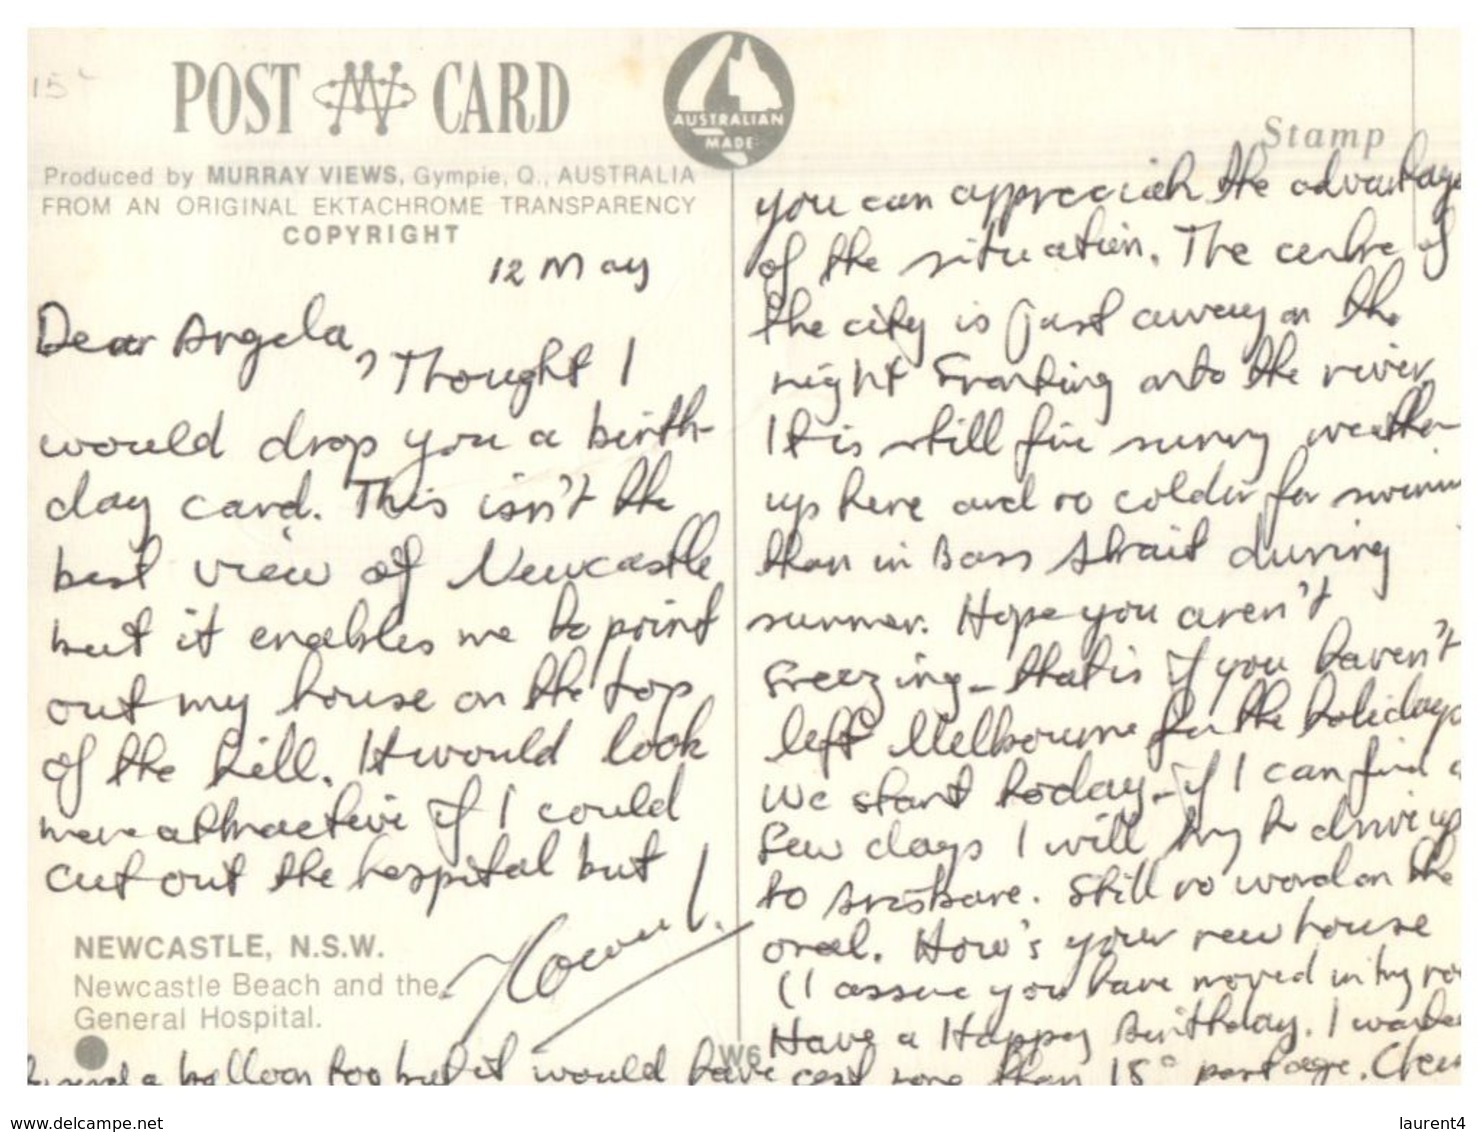 15
POST CARD
AUSTRALIAN
MADE
Stamp
Produced by MURRAY VIEWS, Gympie, Q., AUSTRALIA
FROM AN ORIGINAL EKTACHROME TRANSPARENCY
COPYRIGHT
12 May
Dear Angela,
Thought I
would drop you a birth-
day card. This isn't the
best view of Newcastle
but it enables me to point
out my house on the top
of the hill. It would look
more attractive if I could
cut out the hospital but
NEWCASTLE, N.S.W.
Newcastle Beach and the
General Hospital.
you can appreciate the advantage
of the situation. The centre of
the city is just away on the
right fronting onto the river
It is still fine sunny weather
up here and no colder for swimm
than in Bass Strait during
summer. Hope you aren't
freezing - that is if you haven't
left Melbourne for the holidays
We start today - if I can find a
few days I will try to drive up
to Brisbane. Still no word on the
oral. How's your new house
(I assume you have moved in by no
Have a Happy Birthday. I wanted
to send a balloon too but it would have cost more than 18c postage. Cheer
W6
www.delcampe.net
laurent4